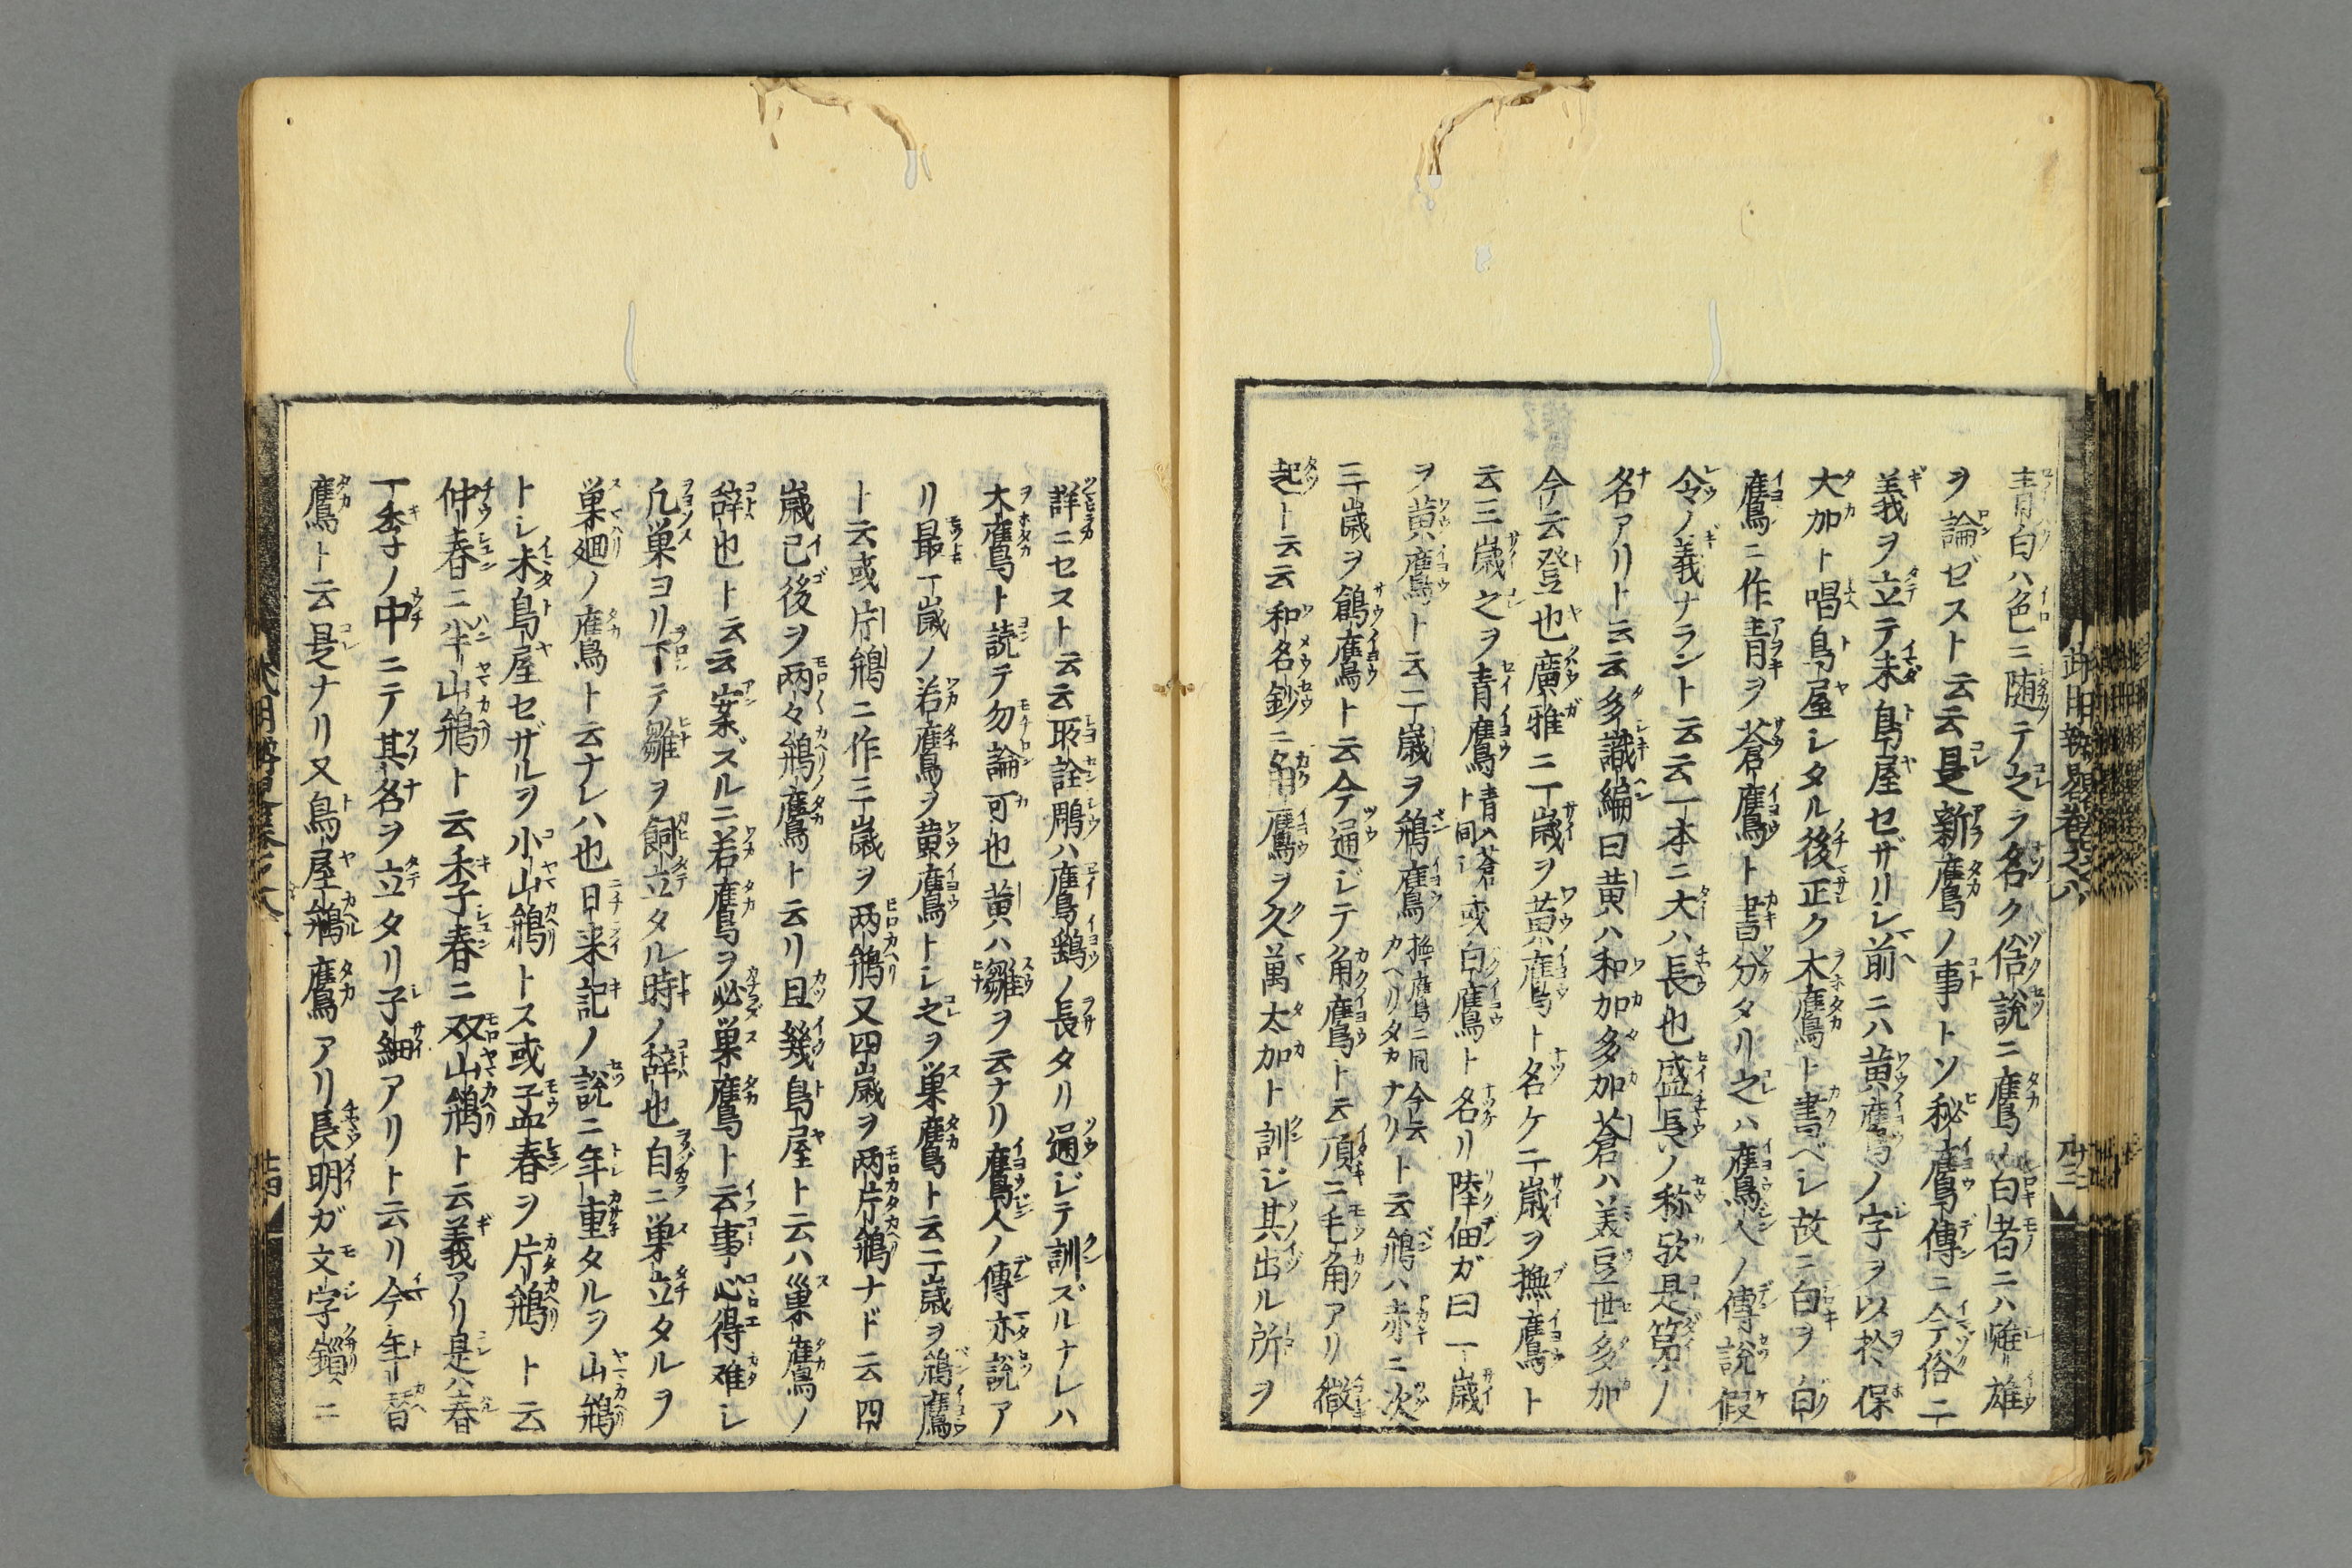 青白ハ色ニ随テ之ヲ名ク俗説ニ鷹ノ白者ニハ雌リ雄
ヲ論ゼスト云云是新鷹ノ事トソ秘鷹傳ニ今俗ニ二
義ヲ立テ未鳥屋セザリレ前ニハ黄鷹ノ字ヲ以於保
大加ト唱鳥屋レタル後正ク木鷹ト書ベレ故ニ白ヲ白
鷹ニ作青ヲ蒼鷹ト書分タリ之ハ鷹人ノ傳説假
令ノ義ナラント云云一本ニ大ハ長也盛長ノ称欤是第ノ
名アリト云云多識編曰黄ハ和加多加蒼ハ美豆世多加
今云登也廣雅ニ一歳ヲ黄鷹ト名ケ二歳ヲ撫鷹ト
云三歳之ヲ青鷹青ハ蒼ト同シ或白鷹ト名リ陸佃ガ曰一歳
ヲ黄鷹ト云二歳ヲ鴘鷹撫鷹ニ同今云カヘリタカナリト云鴘ハ赤ニ次
三歳ヲ鶬鷹ト云今通レテ角鷹ト云頂ニ毛角アリ微
起ト云云和名鈔ニ角鷹ヲ久萬太加ト訓シ其出ル所ヲ
詳ニセスト云云所詮鵰ハ鷹鷂ノ長タリ通レテ訓ズルナレハ
大鷹ト読テ勿論可也黄ハ雛ヲ云ナリ鷹人ノ傳亦説ア
リ最一歳ノ若鷹ヲ黄鷹トレ之ヲ巣鷹ト云二歳ヲ鴘鷹
ト云或片鴘ニ作三歳ヲ两鴘又四歳ヲ两片鴘ナド云四
歳已後ヲ两々鴘鷹ト云リ且幾鳥屋ト云ハ巣鷹ノ
辞也ト云云案ズルニ若鷹ヲ必巣鷹ト云事心得难レ
凢巣ヨリ下テ雛ヲ飼立タル時ノ辞也自ニ巣立タルヲ
巣廻ノ鷹ト云ナレハ也日来記ノ説ニ年重タルヲ山鴘
トレ未鳥屋セザルヲ小山鴘トス或孟春ヲ片鴘ト云
仲春ニハ半山鴘ト云季春ニ双山鴘ト云義アリ是ハ春
一季ノ中ニテ其名ヲ立タリ子細アリト云リ今年一替
鷹ト云是ナリ又鳥屋鴘鷹アリ長明ガ文字鎻ニ